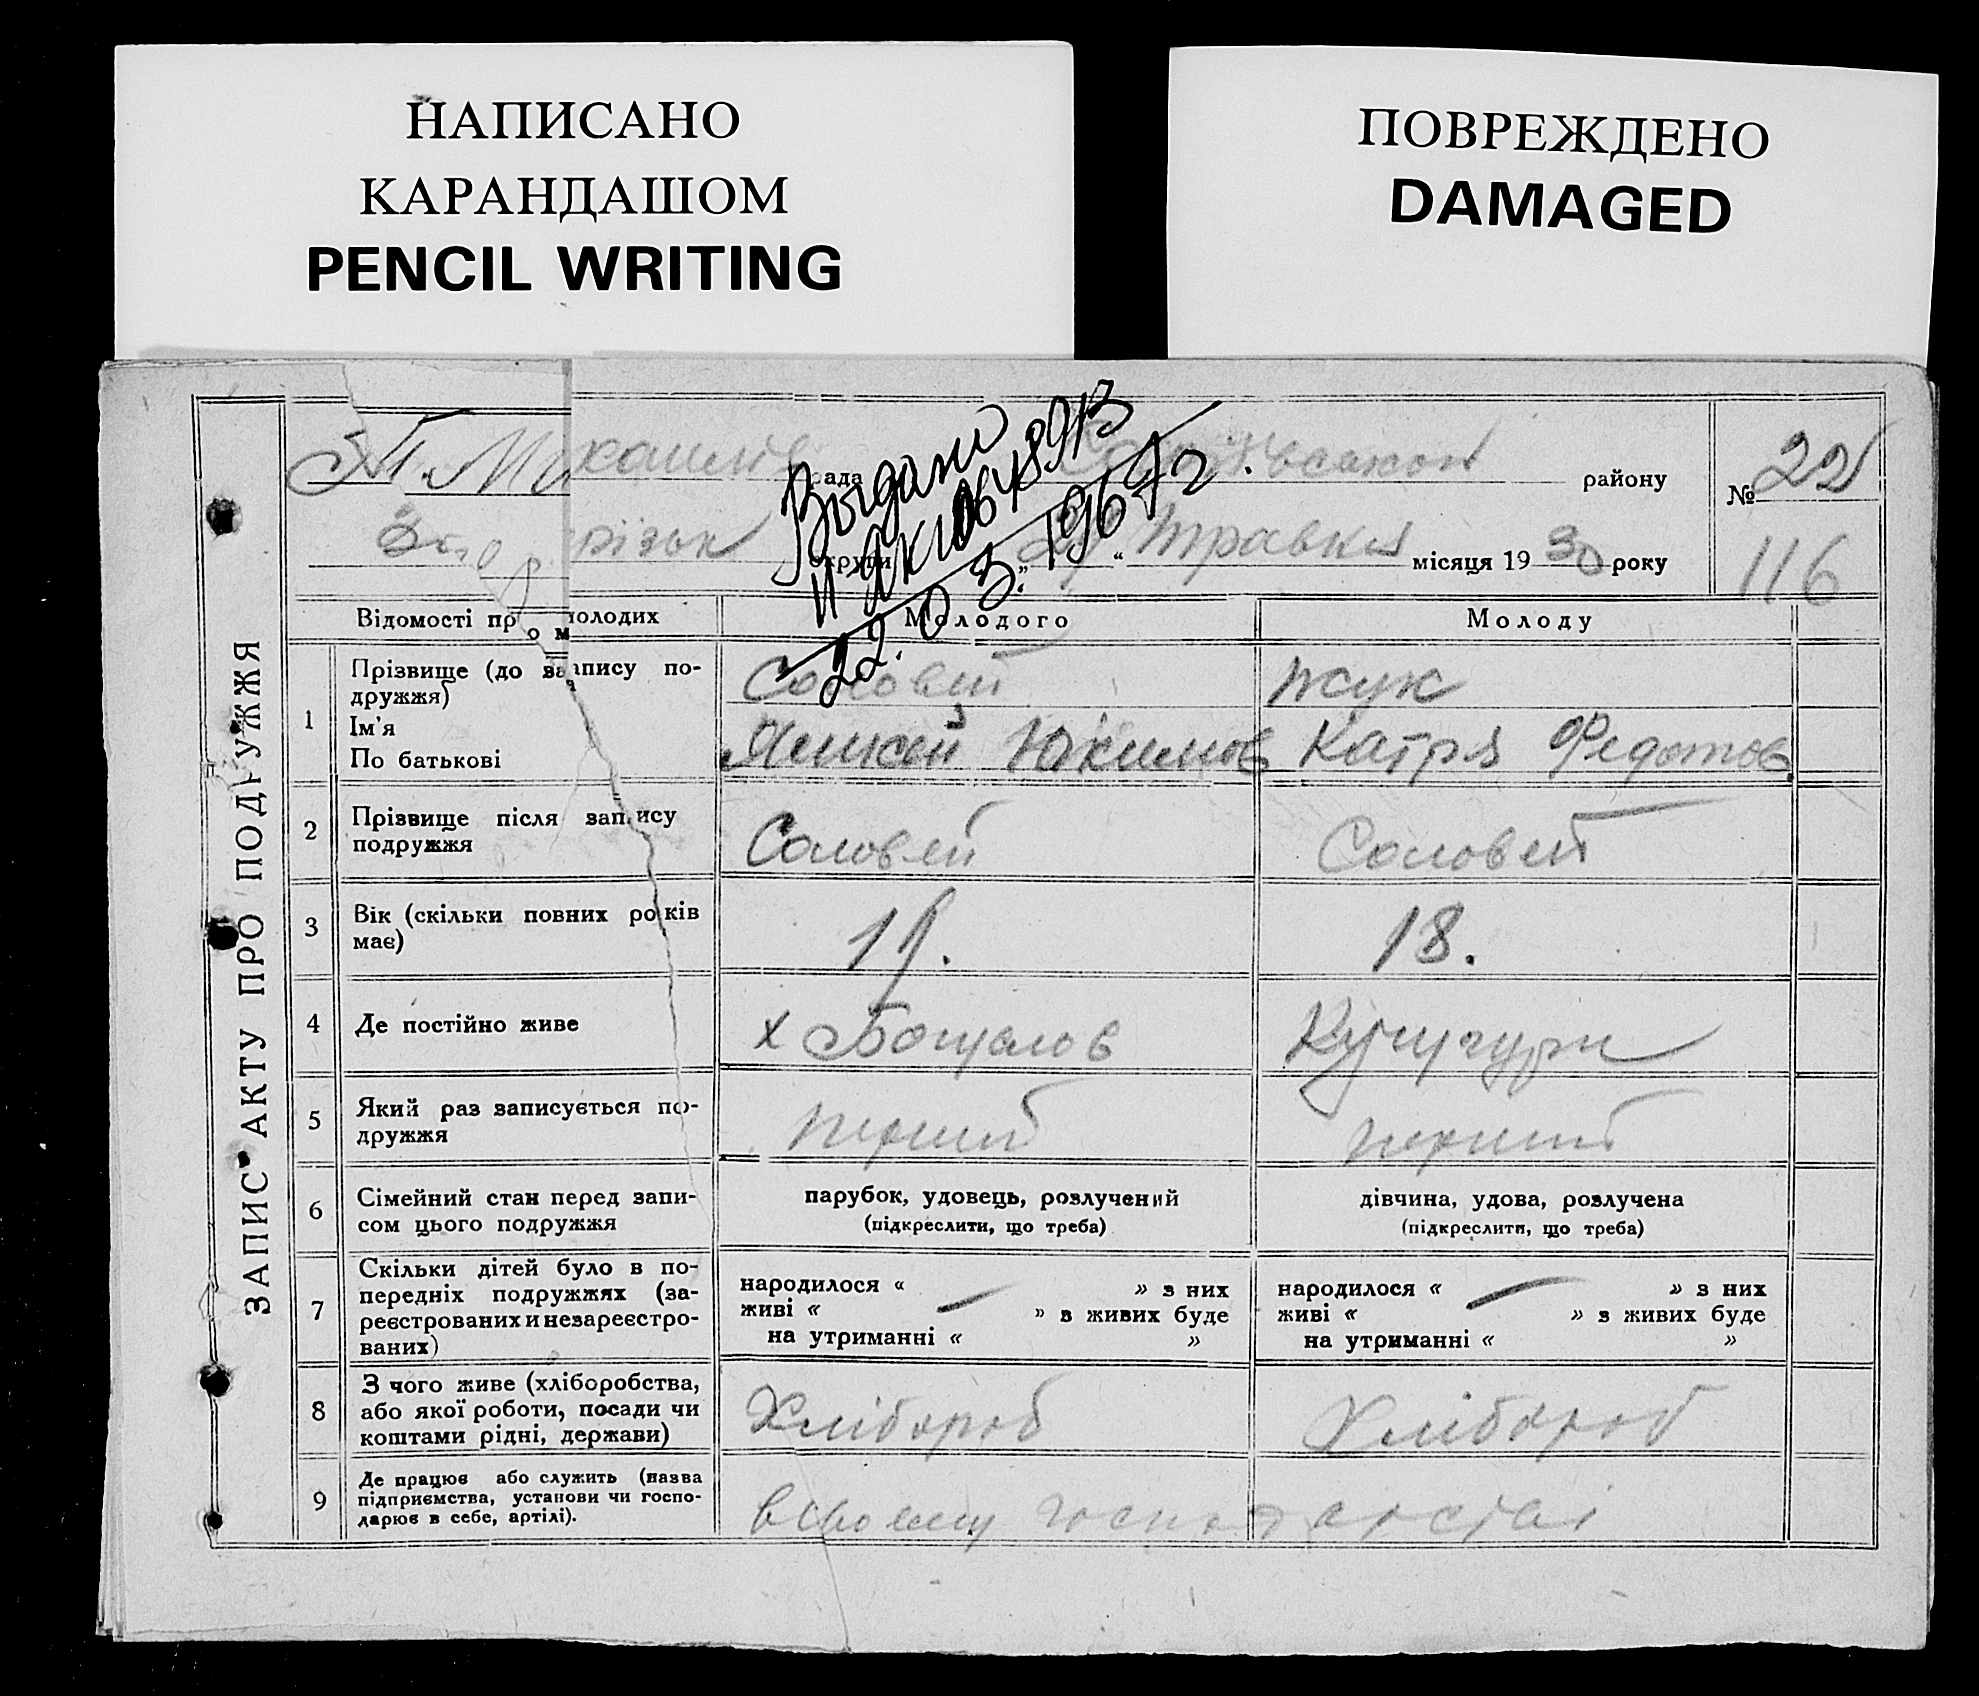 НАПИСАНО
КАРАНДАШОМ
PENCIL WRITING
ПОВРЕЖДЕНО
DAMAGED
ЗАПИС АКТУ ПРО ПОДРУЖЖЯ
рада району № 22
округи Травня місяця 1930 року 116
Выдано
22.03.1967 г.
Відомості про молодих Молодого Молоду
1 Прізвище (до запису по-
дружжя)
Ім'я
По батькові
Соловей Жук
Катря Федотов
2 Прізвище після запису
подружжя
Соловей Соловей
3 Вік (скільки повних років
має)
19. 18.
4 Де постійно живе
х Кучугури
5 Який раз записується по-
дружжя
перший перший
6 Сімейний стан перед запи-
сом цього подружжя
парубок, удовець, розлучений
(підкреслити, що треба)
дівчина, удова, розлучена
(підкреслити, що треба)
7 Скільки дітей було в по-
передніх подружжях (за-
реєстрованих и незареєстро-
ваних)
народилося « » з них
живі « » з живих буде
на утриманні « »
народилося « » з них
живі « » з живих буде
на утриманні « »
8 З чого живе (хліборобства,
або якої роботи, посади чи
коштами рідні, держави)
Хлібороб Хлібороб
9 Де працює або служить (назва
підприємства, установи чи госпо-
дарює в себе, артілі).
в своему господарстві